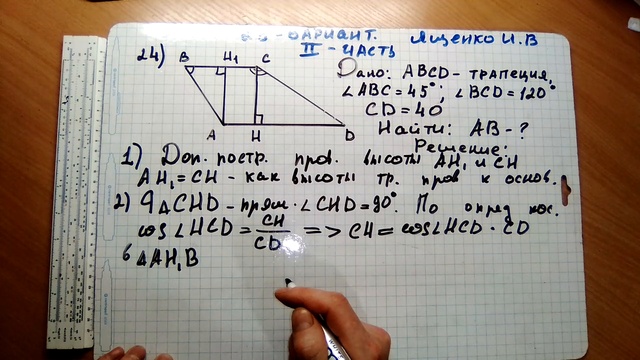 ВАРИАНТ. Ященко И.В
II - часть
24)
B H₁ C
A H D
Дано: ABCD - трапеция,
∠ABC = 45°; ∠BCD = 120°
CD = 40
Найти: AB - ?
Решение:
1) Доп. постр. пров. высоты AH₁ и CH
AH₁ = CH - как высоты тр. пров к основ.
2) ΔCHD - прям. ∠CHD = 90°. По опред кос.
cos∠HCD = CH/CD => CH = cos∠HCD · CD
ΔAH₁B